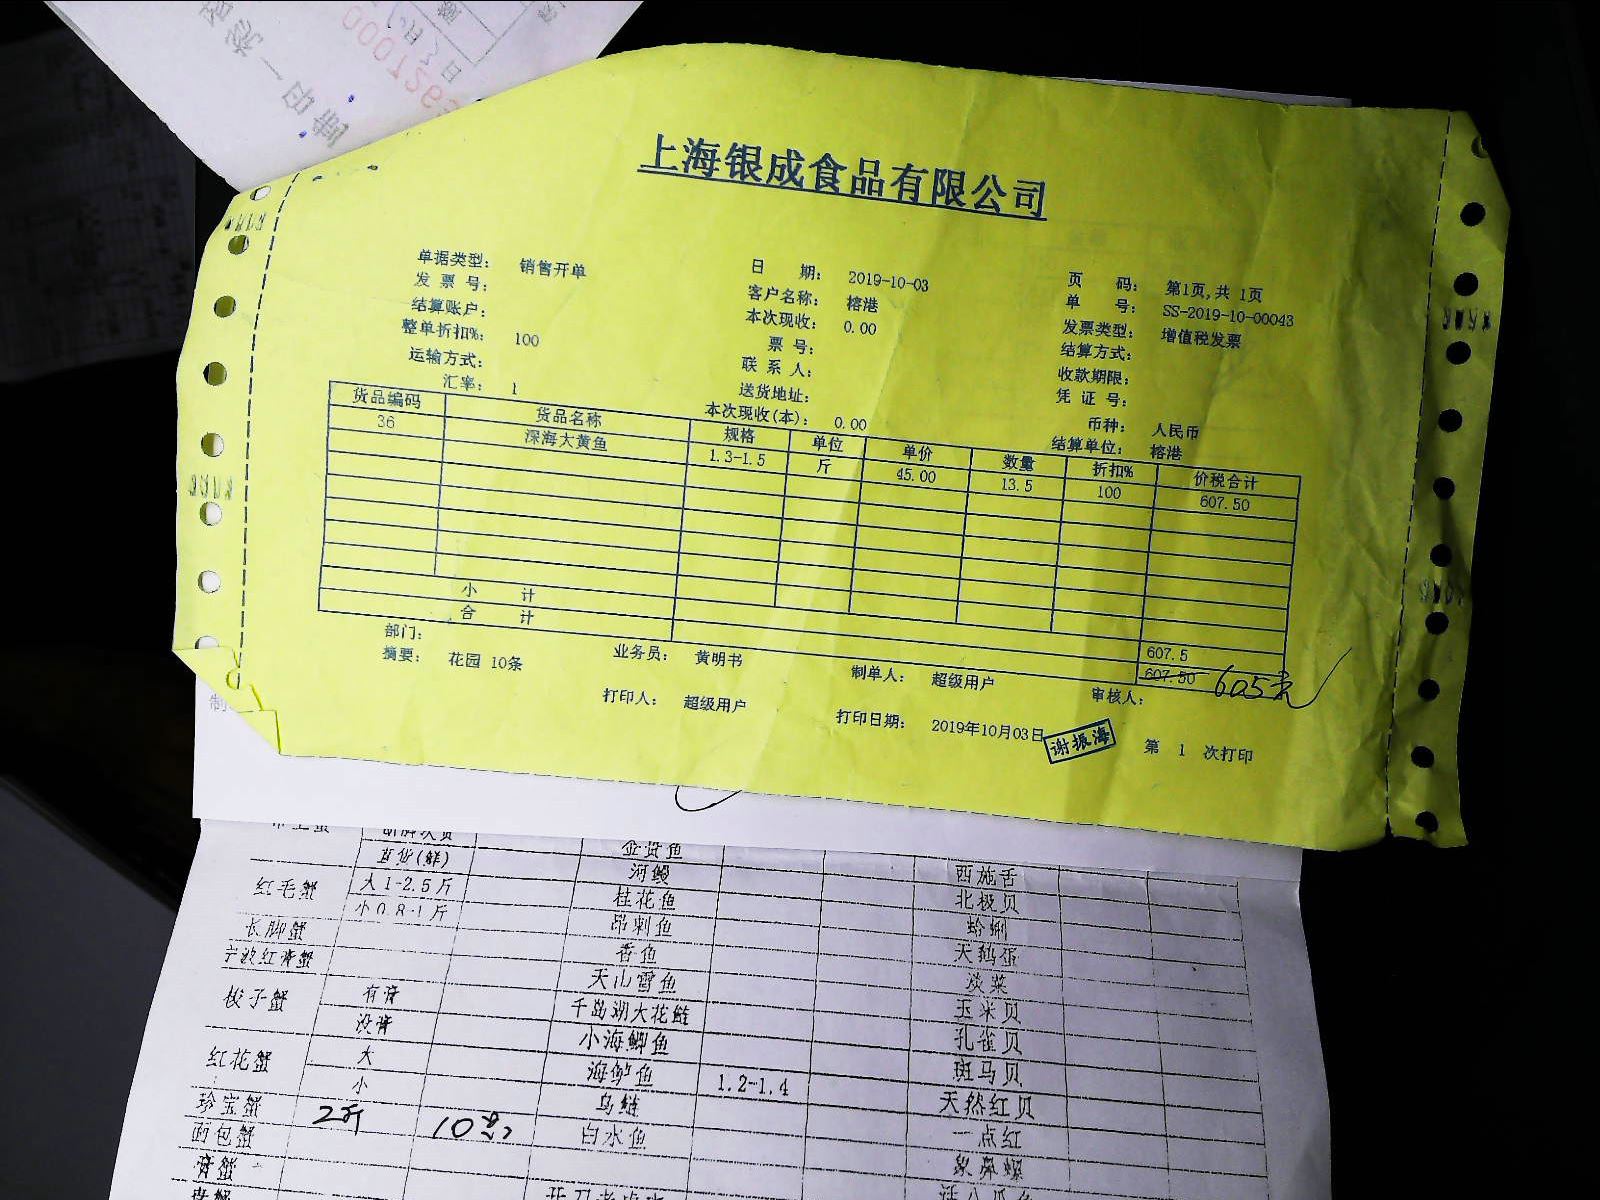 上海银成食品有限公司
单据类型: 销售开单 日 期: 2019-10-03 页 码: 第1页,共 1页
发 票 号: 客户名称: 榕港 单 号: SS-2019-10-00043
结算账户: 本次现收: 0.00 发票类型: 增值税发票
整单折扣%: 100 票 号: 结算方式:
运输方式: 联 系 人: 收款期限:
汇率: 1 送货地址: 凭 证 号:
本次现收(本): 0.00 币种: 人民币
结算单位: 榕港
货品编码 货品名称 规格 单位 单价 数量 折扣% 价税合计
36 深海大黄鱼 1.3-1.5 斤 45.00 13.5 100 607.50
小 计 607.5
合 计 607.50 605元
部门: 业务员: 黄明书 制单人: 超级用户 审核人:
摘要: 花园 10条
打印人: 超级用户 打印日期: 2019年10月03日 谢振海 第 1 次打印
河鳗 西施舌
红毛蟹 大1-2.5斤 桂花鱼 北极贝
小0.8-1斤 昂刺鱼 蛤蜊
长脚蟹 香鱼 天鹅蛋
宁波红膏蟹 天山雪鱼 淡菜
梭子蟹 有膏 千岛湖大花鲢 玉米贝
没膏 小海鲫鱼 孔雀贝
红花蟹 大 海鲈鱼 1.2-1.4 斑马贝
小 乌鲢 天然红贝
珍宝蟹 2斤 10只 白水鱼 一点红
面包蟹 象鼻螺
膏蟹